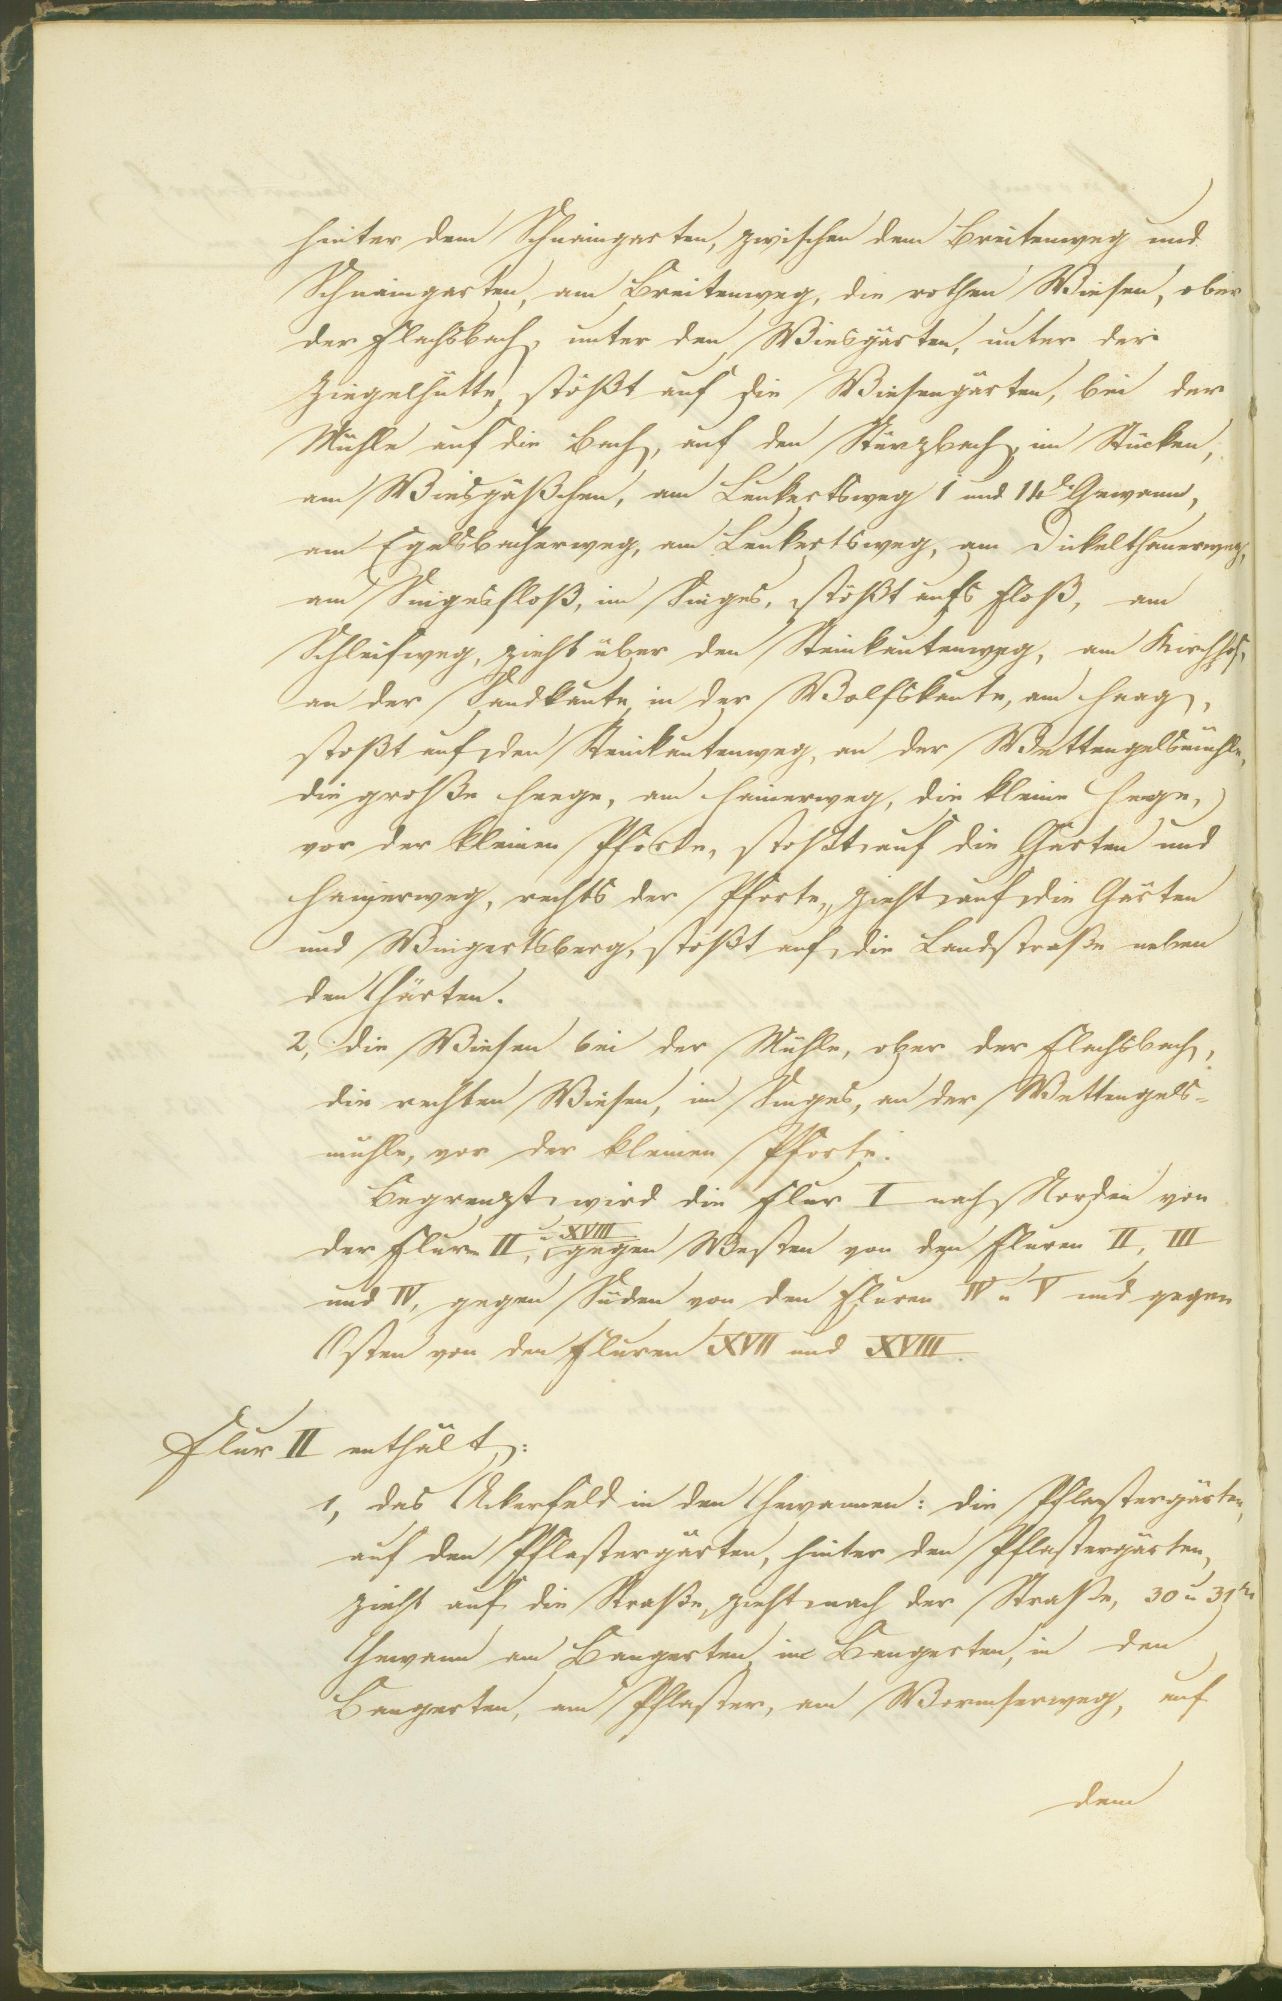 hinter dem Schnaingarten, zwischen dem Breitenweg und
Schnaingarten, am Breitenweg, die rothen Wiesen, ober
der Flachsbach, unter den Wiesgärten, unter der
Ziegelhütte, stößt auf die Wiesengärten, bei der
Mühle auf die Bach, auf den Sterzbach, im Stücken,
am Wiesgäßchen, am Leukertsweg 1 und 14te Gewann,
am Egelsbacherweg, am Leukertsweg, am Dickelthauerweg,
am Singesfloß, im Singes, stößt aufs Floß, am
Schleifweg, zieht über den Steinkautenweg, am Kirchhof,
an der Sandkaute, in der Wolfskaute, am Haag,
stoßt auf den Steinkautenweg, an der Wettengelsmühle,
die große Heege, am Hainerweg, die kleine Hege,
vor der kleinen Pforte, stoßt auf die Gärten und
Hainerweg, rechts der Pforte, zieht auf die Gärten
und Wingertsberg, stößt auf die Landstraße neben
den Gärten.
2, die Wiesen bei der Mühle, ober der Flachsbach,
die rothen Wiesen, im Singes, an der Wettengels-
mühle, vor der kleinen Pforte.
Begrenzt wird die Flur I nach Norden von
der Flur II, u XVIII gegen Westen von den Fluren II, III
und IV, gegen Süden von den Fluren IV u V und gegen
Osten von den Fluren XVII und XVIII.
Flur II enthält:
1, das Ackerfeld in den Gewannen: die Pflastergärten,
auf den Pflastergärten, hinter den Pflastergärten,
zieht auf die Straße, zieht nach der Straße, 30 u 31te
Gewann am Bangerten, im Bangerten, in den
Bangerten, am Pflaster, am Wormserweg, auf
dem